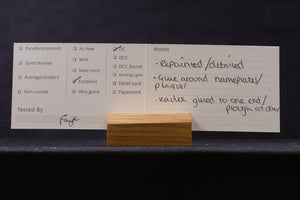 Excellent/smooth
Good Runner
Average/stutters
Non-runner
Tested By
As new
Mint
Near mint
Excellent
Very good
DC
DCC
DCC Sound
Working Lights
Detail pack
Paperwork
Notes
- Repainted/detailed
- Glue around nameplates/
plaques
- Radee glued to one end/
plough at other